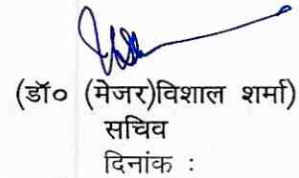 (डॉ० (मेजर)विशाल शर्मा)
सचिव
दिनांक :